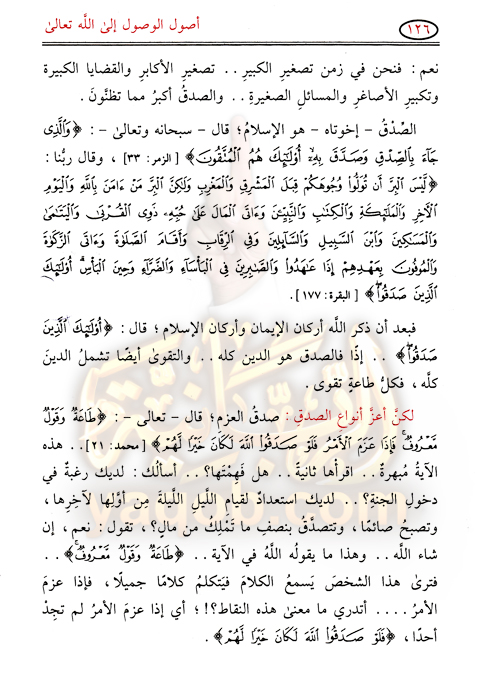 ١٢٦ أصول الوصول إلى اللَّه تعالى
نعم : فنحن في زمن تصغيرِ الكبيرِ . . تصغيرِ الأكابرِ والقضايا الكبيرة
وتكبيرِ الأصاغرِ والمسائلِ الصغيرةِ . . والصدقُ أكبرُ مما تظنُّونَ .
الصِّدْقُ - إخوتاه - هو الإسلامُ؛ قال - سبحانه وتعالىٰ - : ﴿وَٱلَّذِى
جَآءَ بِٱلصِّدْقِ وَصَدَّقَ بِهِۦٓ أُو۟لَٰٓئِكَ هُمُ ٱلْمُتَّقُونَ﴾ [الزمر: ٣٣] ، وقال ربُّنا :
﴿لَّيْسَ ٱلْبِرَّ أَن تُوَلُّوا۟ وُجُوهَكُمْ قِبَلَ ٱلْمَشْرِقِ وَٱلْمَغْرِبِ وَلَٰكِنَّ ٱلْبِرَّ مَنْ ءَامَنَ بِٱللَّهِ وَٱلْيَوْمِ
ٱلْءَاخِرِ وَٱلْمَلَٰٓئِكَةِ وَٱلْكِتَٰبِ وَٱلنَّبِيِّۦنَ وَءَاتَى ٱلْمَالَ عَلَىٰ حُبِّهِۦ ذَوِى ٱلْقُرْبَىٰ وَٱلْيَتَٰمَىٰ
وَٱلْمَسَٰكِينَ وَٱبْنَ ٱلسَّبِيلِ وَٱلسَّآئِلِينَ وَفِى ٱلرِّقَابِ وَأَقَامَ ٱلصَّلَوٰةَ وَءَاتَى ٱلزَّكَوٰةَ
وَٱلْمُوفُونَ بِعَهْدِهِمْ إِذَا عَٰهَدُوا۟ وَٱلصَّٰبِرِينَ فِى ٱلْبَأْسَآءِ وَٱلضَّرَّآءِ وَحِينَ ٱلْبَأْسِ أُو۟لَٰٓئِكَ
ٱلَّذِينَ صَدَقُوا۟﴾ [البقرة: ١٧٧] .
فبعد أن ذكر اللَّه أركان الإيمان وأركان الإسلام ؛ قال : ﴿أُو۟لَٰٓئِكَ ٱلَّذِينَ
صَدَقُوا۟﴾ . . إذًا فالصدق هو الدين كله . . والتقوىٰ أيضًا تشملُ الدينَ
كلَّه ، فكلُّ طاعةٍ تقوى .
لكنَّ أعزَّ أنواعِ الصدقِ : صدقُ العزمِ؛ قال - تعالى - : ﴿طَاعَةٌ وَقَوْلٌ
مَّعْرُوفٌ فَإِذَا عَزَمَ ٱلْأَمْرُ فَلَوْ صَدَقُوا۟ ٱللَّهَ لَكَانَ خَيْرًا لَّهُمْ﴾ [محمد: ٢١].. هذه
الآيةُ مُبهرةٌ.. اقرأها ثانيةً.. هل فَهِمْتَها؟.. أسألُك: لديك رغبةٌ في
دخولِ الجنةِ؟.. لديك استعدادٌ لقيامِ اللَّيلِ اللَّيلةَ مِن أوَّلِها لآخِرِها،
وتصبحُ صائمًا، وتتصدَّقُ بنصفِ ما تَمْلِكُ من مالٍ؟، تقول: نعم، إن
شاء اللَّه.. وهذا ما يقولُه اللَّهُ في الآية.. ﴿طَاعَةٌ وَقَوْلٌ مَّعْرُوفٌ﴾ . .
فترىٰ هذا الشخصَ يَسمعُ الكلامَ فيَتكلمُ كلامًا جميلًا، فإذا عزمَ
الأمرُ.... أتدري ما معنىٰ هذه النقاط؟!؛ أي إذا عزمَ الأمرُ لم تجِدْ
أحدًا، ﴿فَلَوْ صَدَقُوا۟ ٱللَّهَ لَكَانَ خَيْرًا لَّهُمْ﴾ .